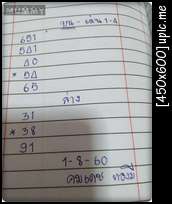 บน - เด่น 1-4
651
541
40
* 54
65
ล่าง
31
* 38
91
1-8-60
[450x600] upic.me